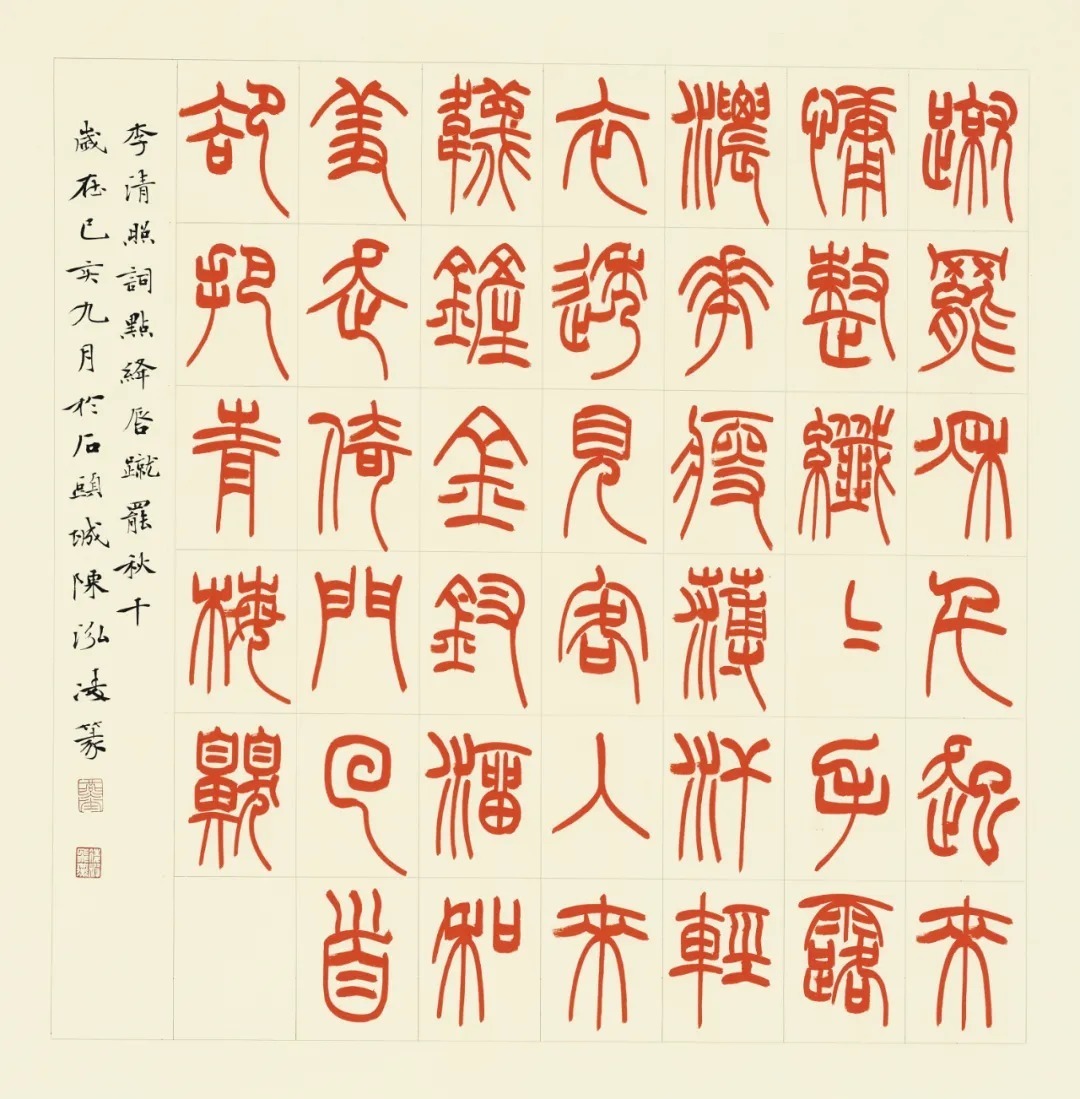 蹴罷秋千起來
慵整纖〻手露
濃花瘦薄汗輕
衣透見客入來
襪鏟金釵溜和
羞走倚門回首
卻把青梅齅
李清照詞點絳唇蹴罷秋千
歲在己亥九月於石頭城陳泓凌篆